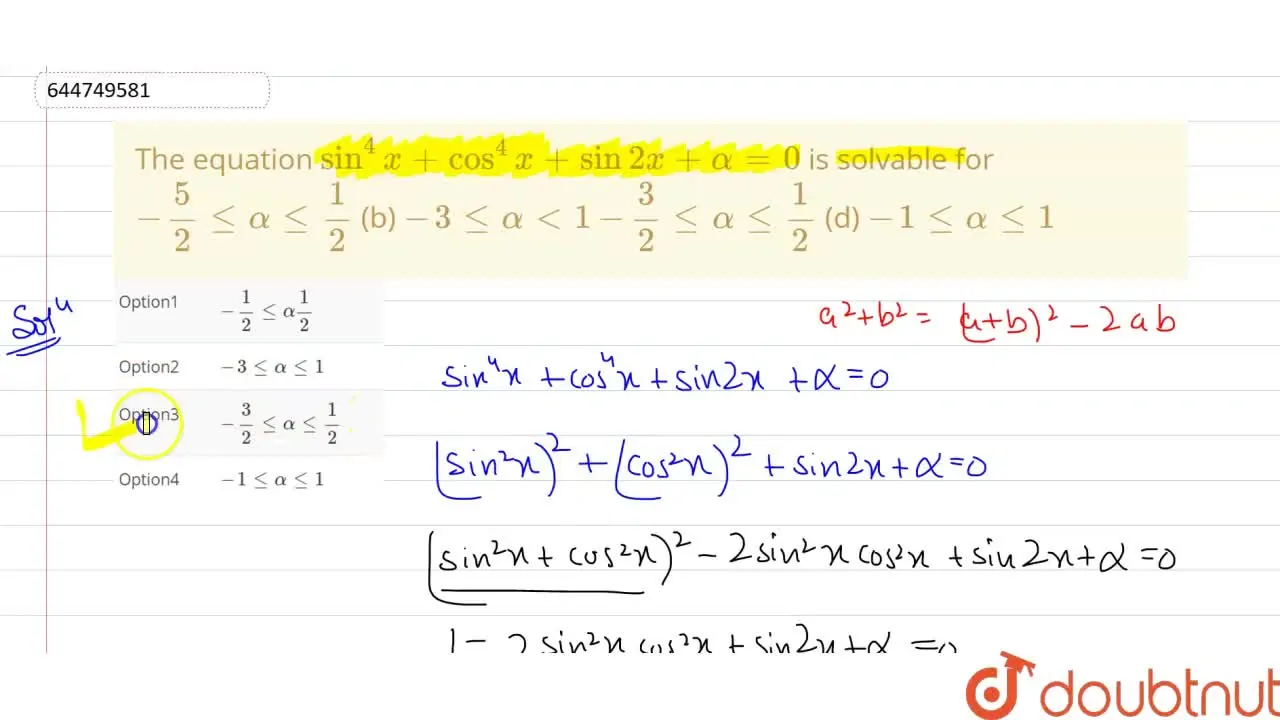 644749581
The equation sin⁴ x + cos⁴ x + sin 2x + α = 0 is solvable for
−5/2 ≤ α ≤ 1/2 (b) −3 ≤ α < 1 −3/2 ≤ α ≤ 1/2 (d) −1 ≤ α ≤ 1
Solⁿ
Option1 −1/2 ≤ α1/2
Option2 −3 ≤ α ≤ 1
Option3 −3/2 ≤ α ≤ 1/2
Option4 −1 ≤ α ≤ 1
a²+b² = (a+b)² − 2ab
sin⁴x + cos⁴x + sin2x + α = 0
(sin²x)² + (cos²x)² + sin2x + α = 0
(sin²x + cos²x)² − 2sin²x cos²x + sin2x + α = 0
1 − 2 sin²x cos²x + sin2x + α = 0
doubtnut